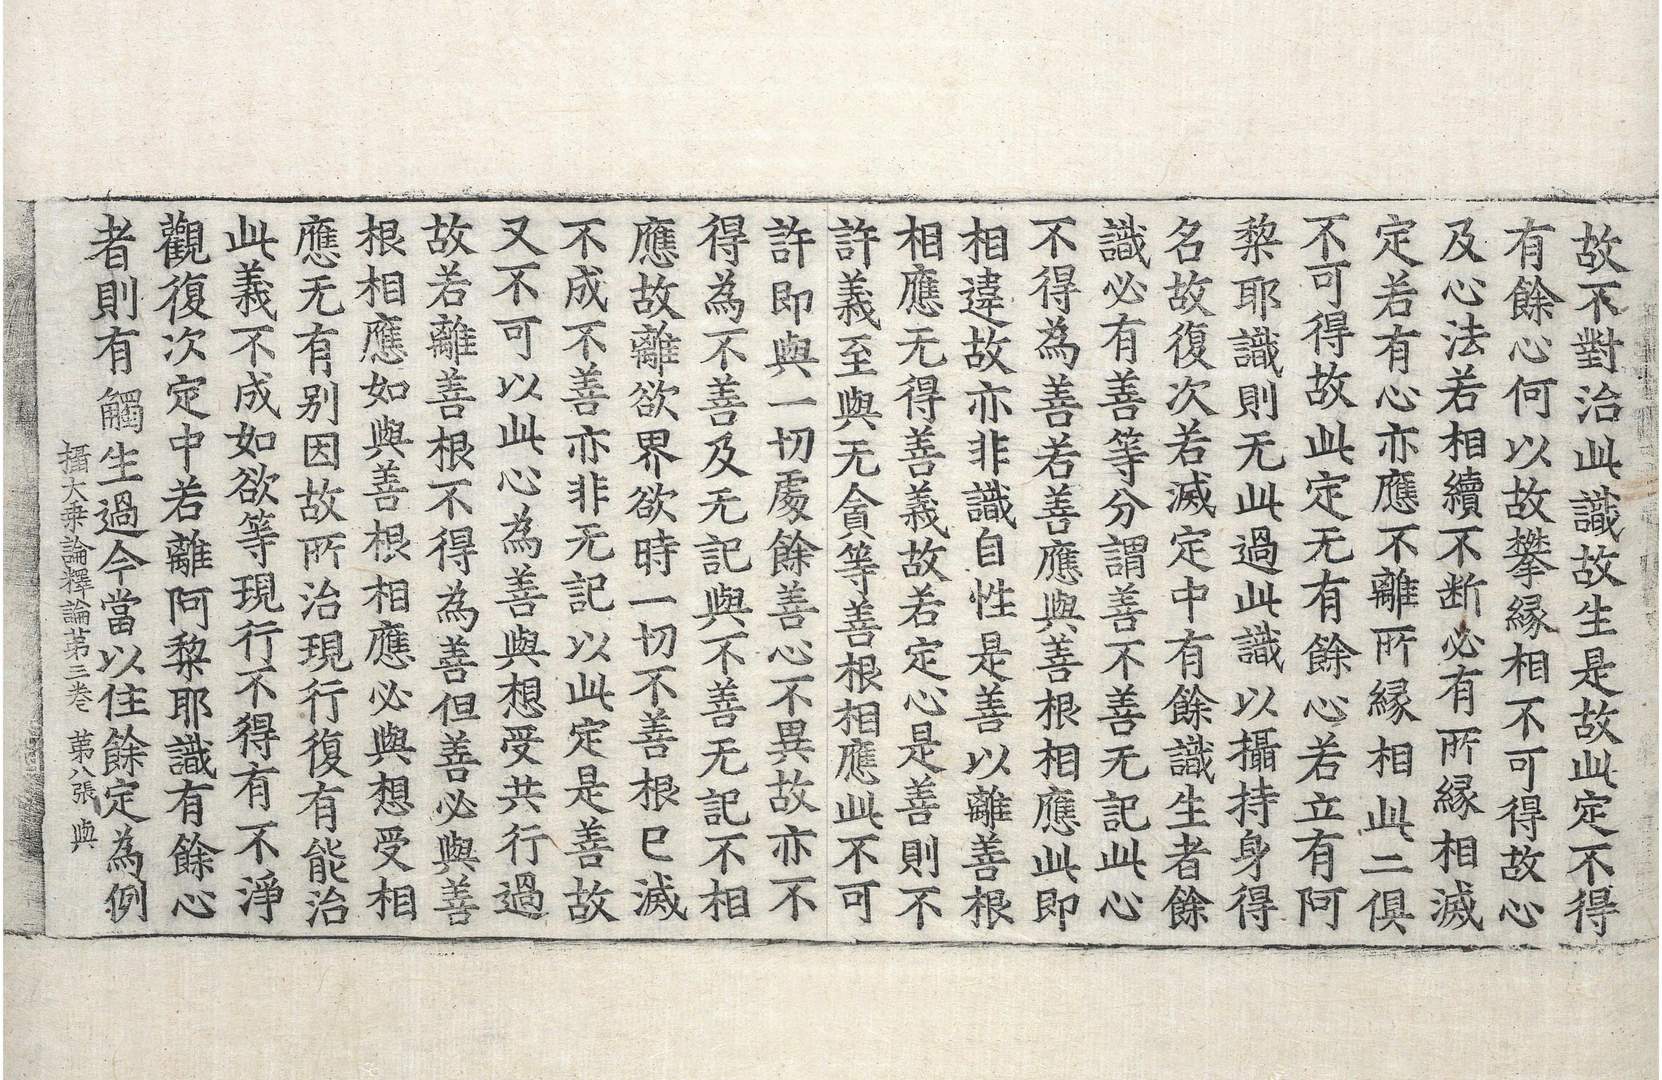 故不對治此識故生是故此定不得
有餘心何以故攀縁相不可得故心
及心法若相續不断必有所縁相滅
定若有心亦應不離所縁相此二俱
不可得故此定无有餘心若立有阿
黎耶識則无此過此識以攝持身得
名故復次若滅定中有餘識生者餘
識必有善等分謂善不善无記此心
不得為善若善應與善根相應此即
相違故亦非識自性是善以離善根
相應无得善義故若定心是善則不
許義至與无貪等善根相應此不可
許即與一切處餘善心不異故亦不
得為不善及无記與不善无記不相
應故離欲界欲時一切不善根已滅
不成不善亦非无記以此定是善故
又不可以此心為善與想受共行過
故若離善根不得為善但善必與善
根相應如與善根相應必與想受相
應无有别因故所治現行復有能治
此義不成如欲等現行不得有不淨
觀復次定中若離阿黎耶識有餘心
者則有觸生過今當以住餘定為例
攝大乗論釋論第三卷 第八張 與